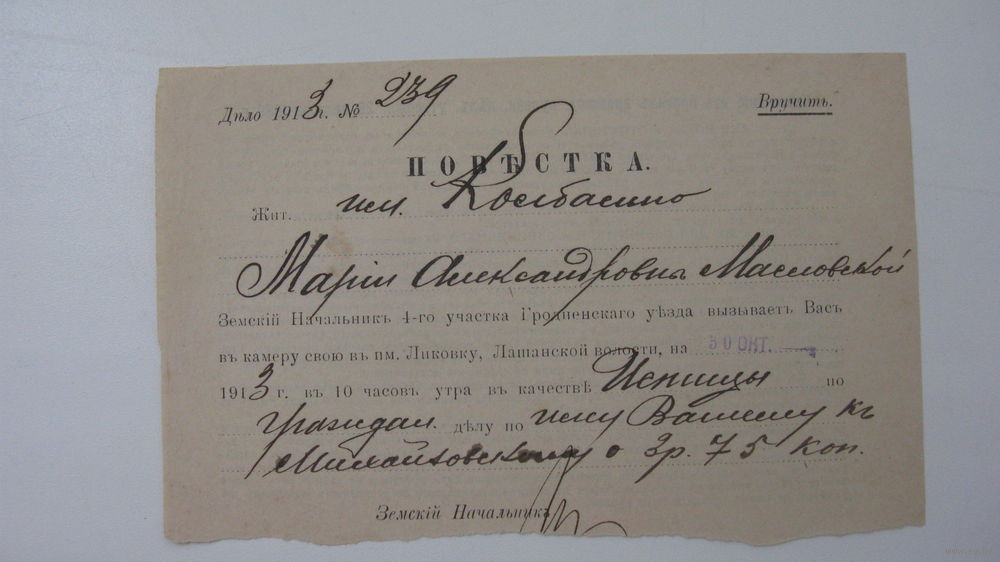 Дѣло 1913 г. № 239
Вручить.
ПОВѢСТКА.
Жит. им. Колбасино
Маріи Александровны Масловской
Земскій Начальникъ 4-го участка Гродненскаго уѣзда вызываетъ Васъ
въ камеру свою въ им. Ликовку, Лашанской волости, на 30 ОКТ.
1913 г. въ 10 часовъ утра въ качествѣ Истицы по
граждан. дѣлу по иску Вашему къ
Михайловскому о 3 р. 75 коп.
Земскій Начальникъ